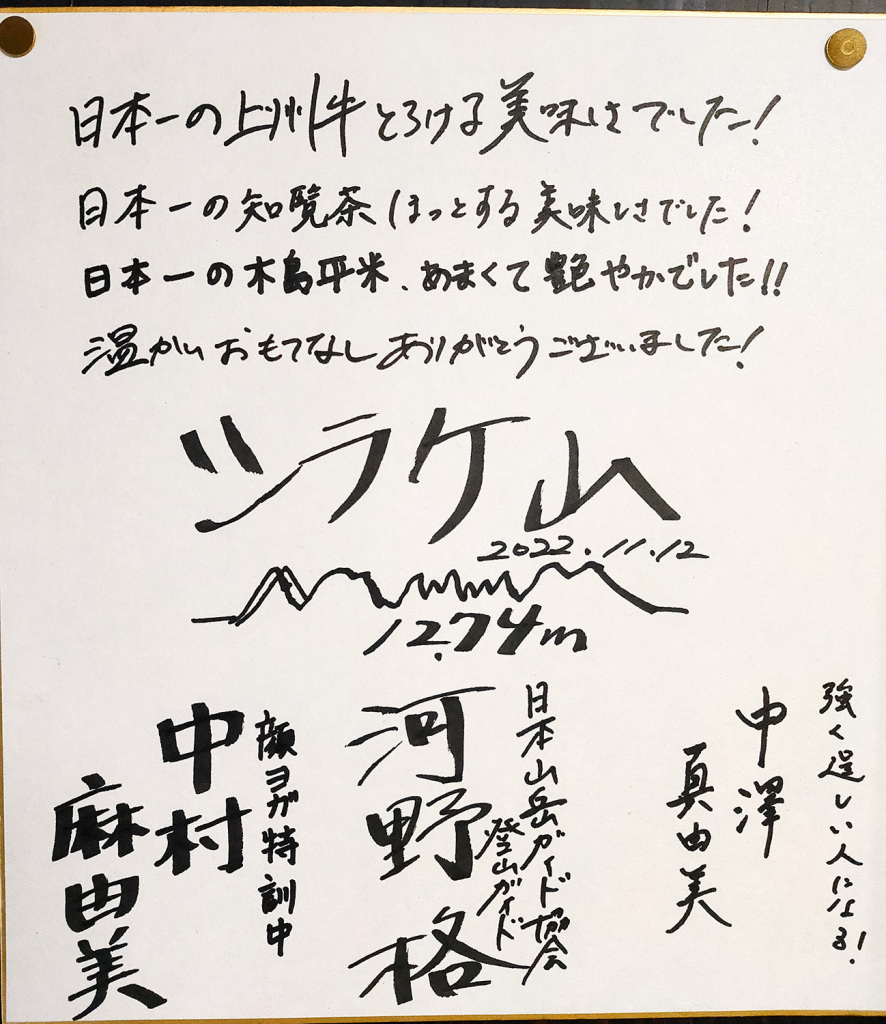 日本一の上州牛とろける美味しさでした!
日本一の知覧茶ほっとする美味しさでした!
日本一の木島平米、あまくて艶やかでした!!
温かいおもてなしありがとうございました!
ツラケ山
2022.11.12
1274m
強く逞しい人になる!
中澤
真由美
日本山岳ガイド協会
登山ガイド
河野格
顔ヨガ特訓中
中村
麻由美